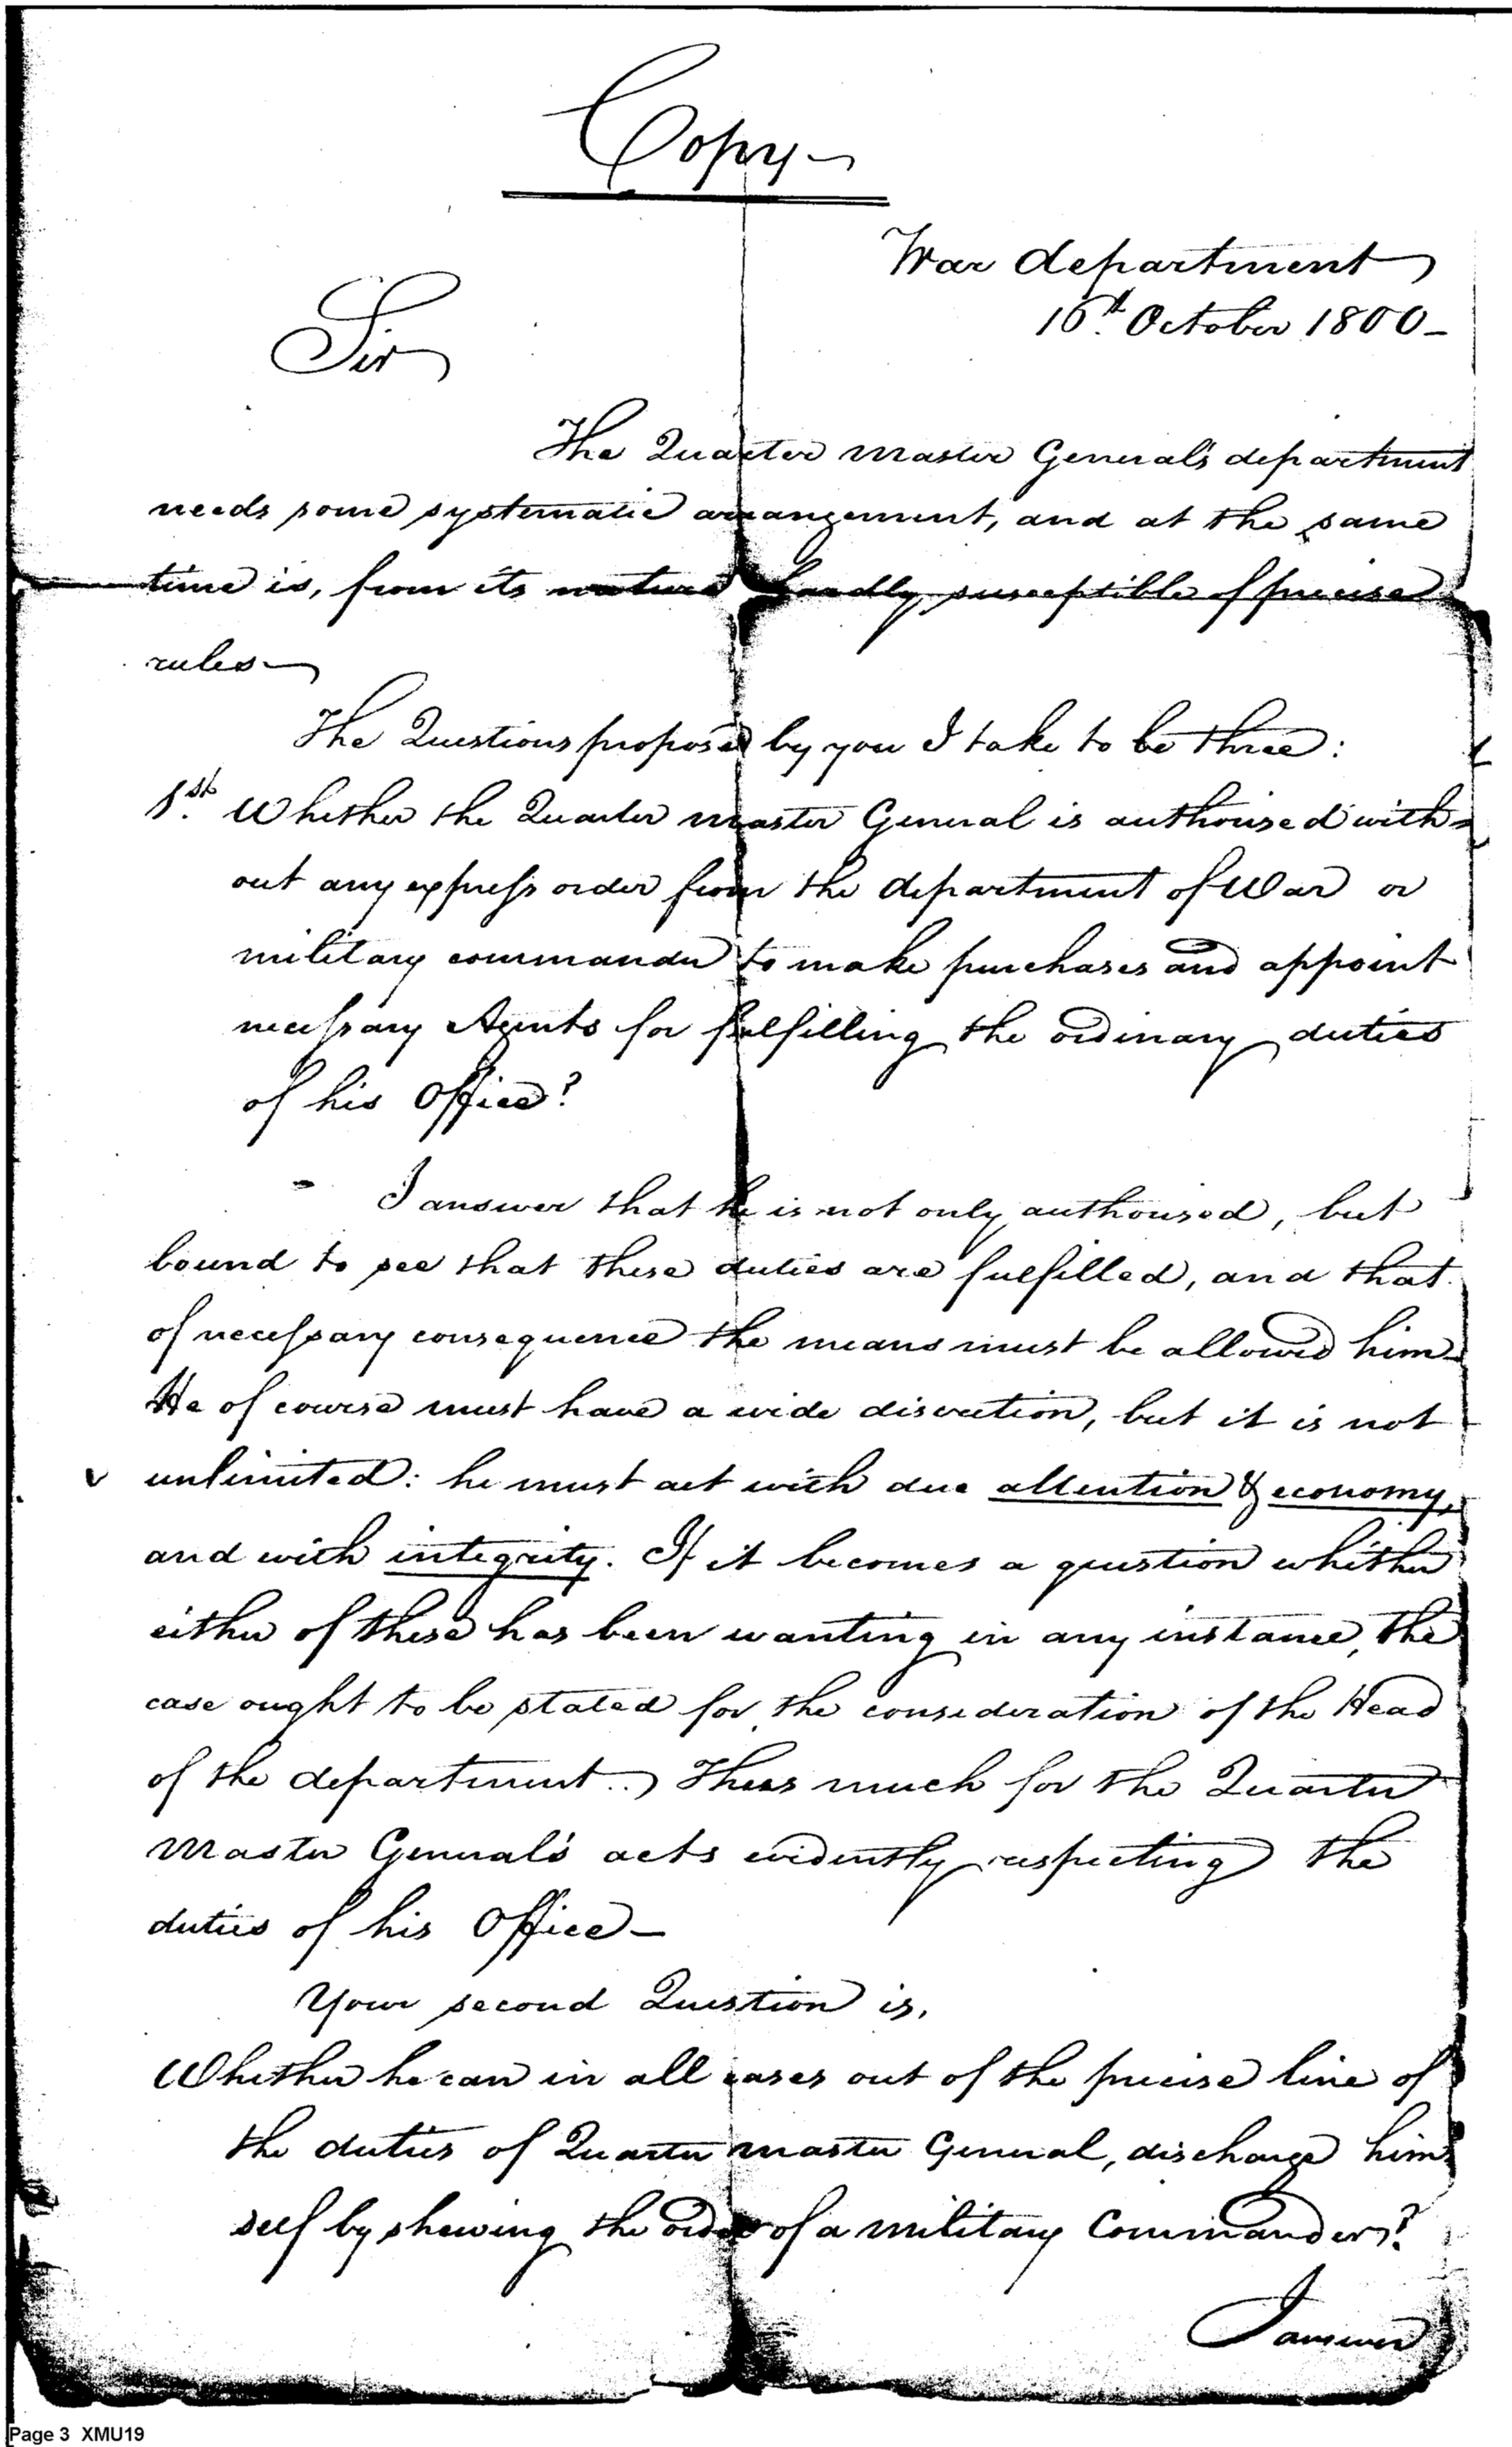 Copy-
War department
16th. October 1800-
Sir
The Quarter master General's department
needs some systematic arrangement, and at the same
time is, from its nature hardly susceptible of precise
rules-
The Questions proposed by you I take to be three:
1.st Whether the Quarter master General is authorised with-
out any express order from the department of War or
military commander to make purchases and appoint
necessary Agents for fulfilling the ordinary duties
of his Office?
I answer that he is not only authorised, but
bound to see that these duties are fulfilled, and that
of necessary consequence the means must be allowed him-
He of course must have a wide discretion, but it is not
unlimited: he must act with due attention & economy,
and with integrity. If it becomes a question whether
either of these has been wanting in any instance, the
case ought to be stated for the consideration of the Head
of the department.. Thus much for the Quarter
Master General's acts evidently respecting the
duties of his Office-
Your second Question is,
Whether he can in all cases out of the precise line of
the duties of Quarter master General, discharge him-
self by shewing the order of a military Commander?
I answer
Page 3 XMU19